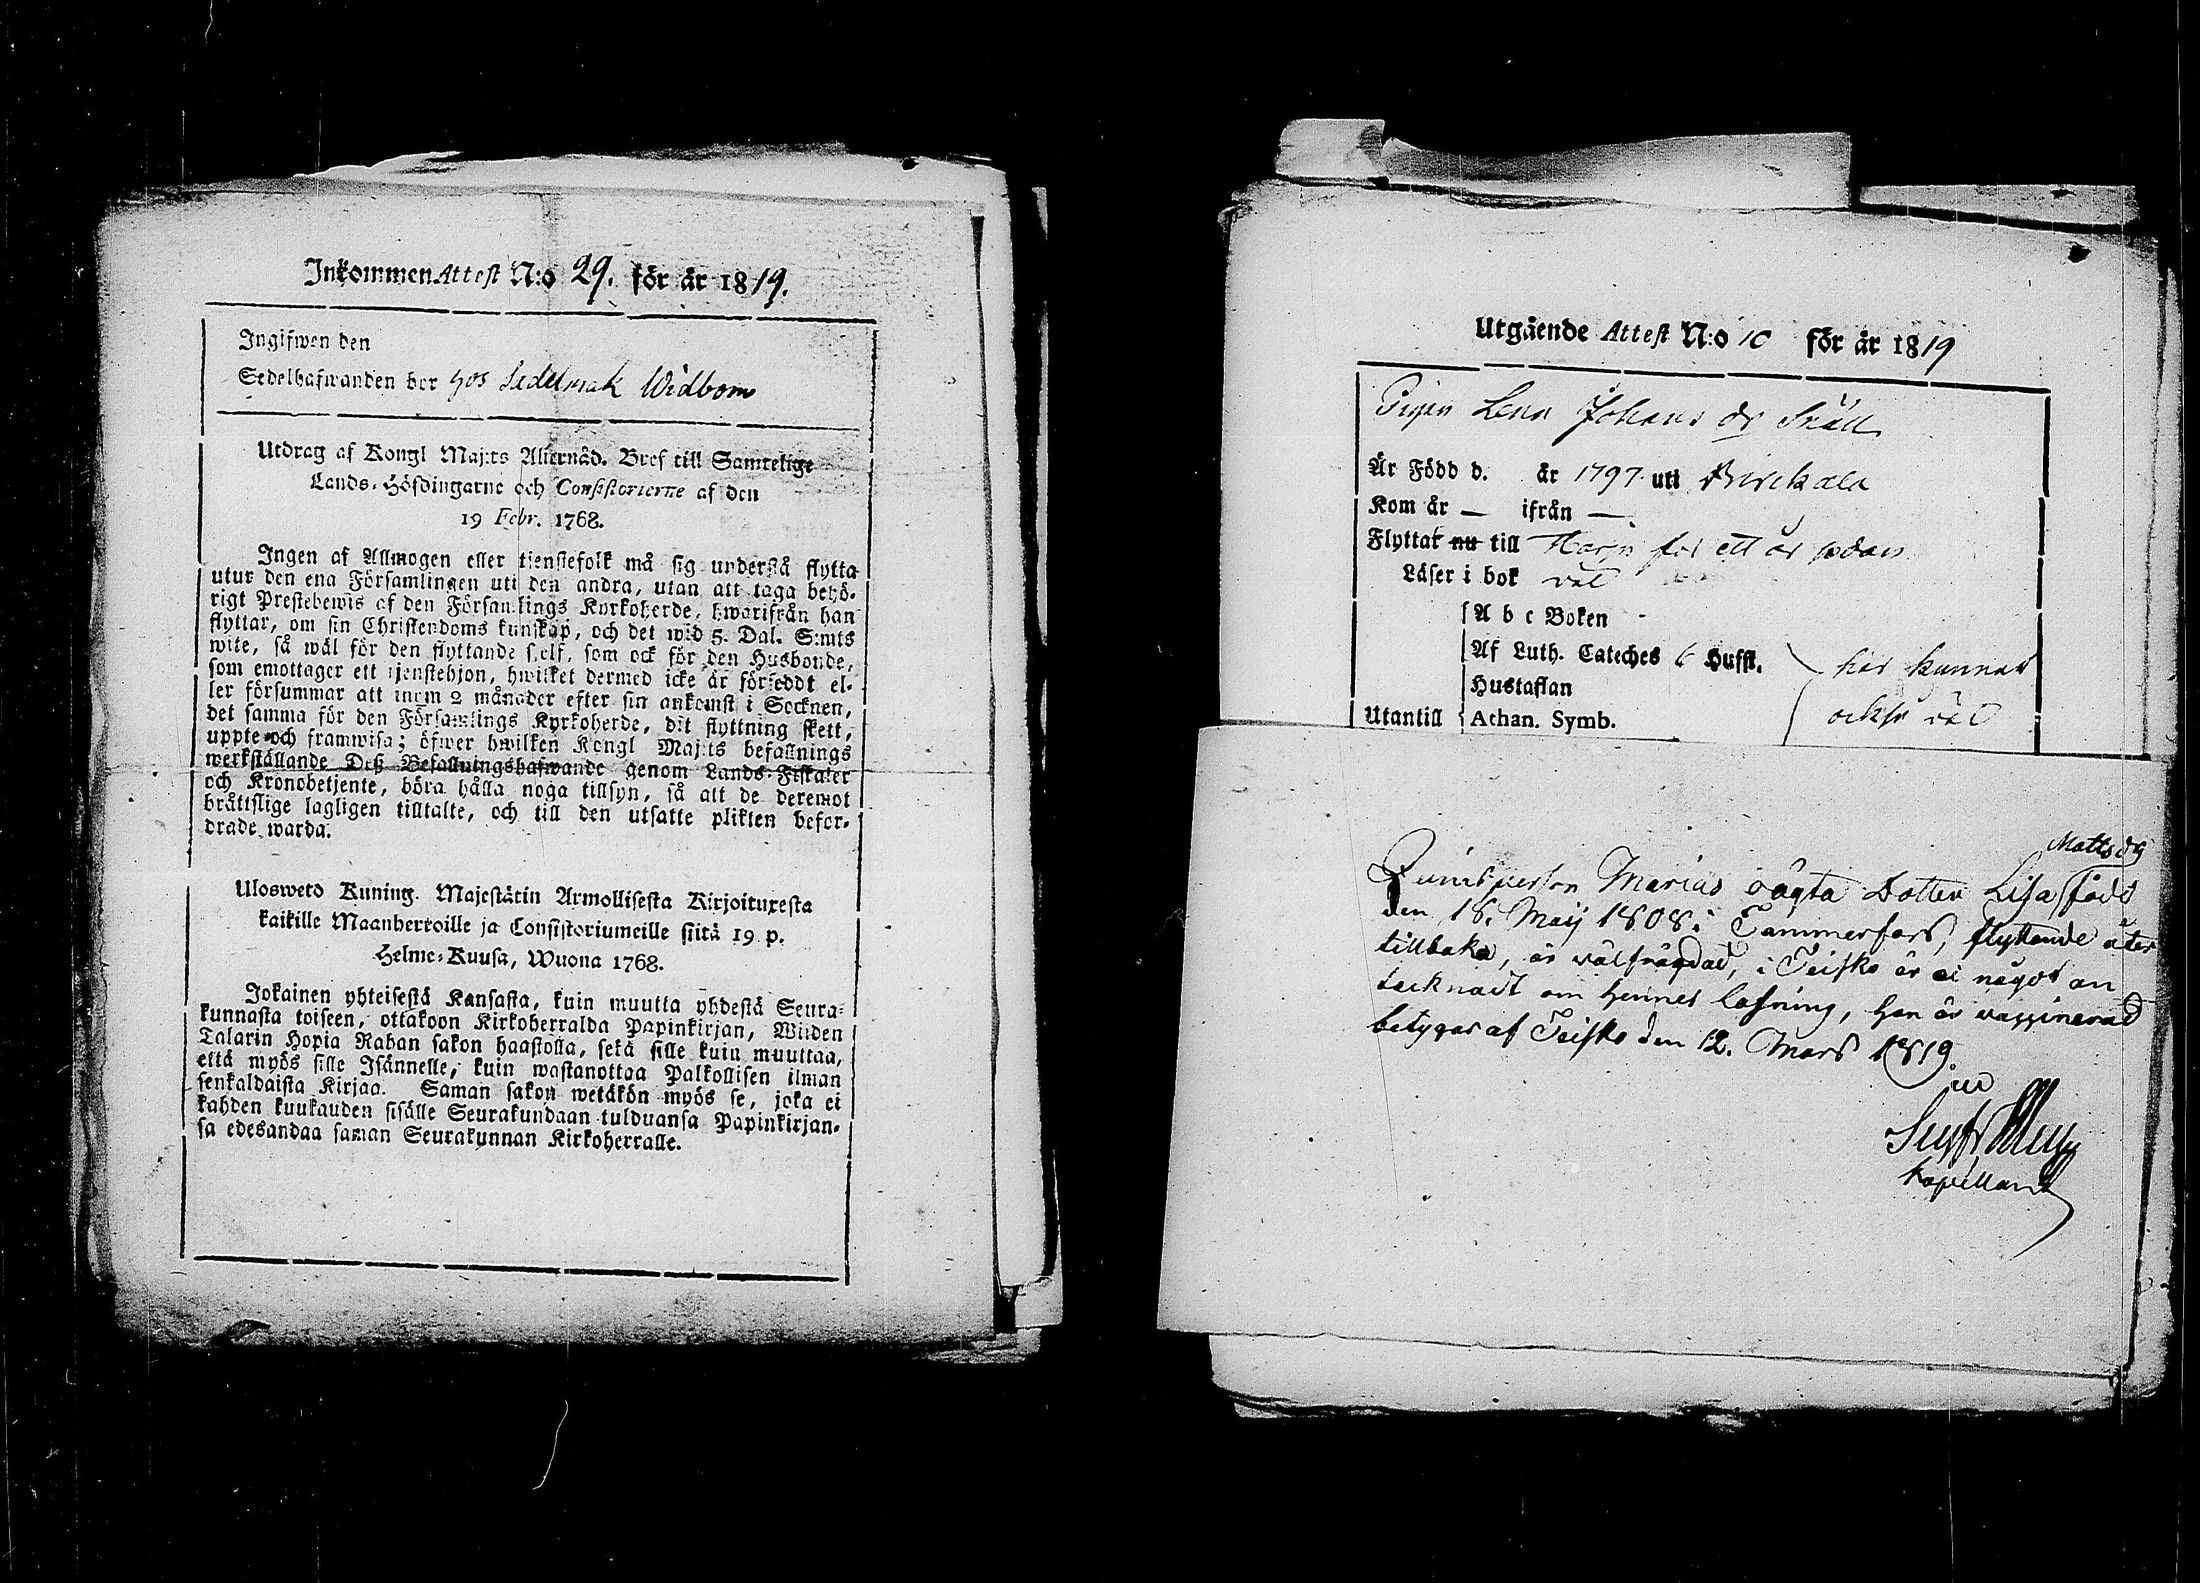 Inkommen Attest N:o 29. för år 1819.
Ingifwen den
Sedelhafwanden bor hos Sadelmak Widbom
Utdrag af Kongl Maj:ts Allernåd. Bref till Samtelige
Lands-Höfdingarne och Consistorierne af den
19 Febr. 1768.
Ingen af Allmogen eller tjenstefolk må sig understå flytta
utur den ena Församlingen uti den andra, utan att taga behö-
rigt Prestebewis af den Församlings Kyrkoherde, hwarifrån han
flyttar, om sin Christendoms kunskap, och det wid 5. Dal. S:mts
wite, så wäl för den flyttande sjelf, som ock för den Husbonde,
som emottager ett tjenstehjon, hwilket dermed icke är försedt el-
ler försummar att inom 2 månader efter sin ankomst i Socknen,
det samma för den Församlings Kyrkoherde, dit flyttning skett,
uppte och framwisa; öfwer hwilken Kongl Maj:ts befallnings
werkställande Deß Befallningshafwande genom Lands-Fiskaler
och Kronobetjente, böra hålla noga tillsyn, så att de deremot
bråttslige lagligen tilltalte, och till den utsatte plikten befor-
drade warda.
Uloswetd Kuning. Majestätin Armollisesta Kirjoituxesta
kaikille Maanherroille ja Consistoriumeille siitä 19 p.
Helme-Kuusa, Wuona 1768.
Jokainen yhteisestä Kansasta, kuin muutta yhdestä Seura-
kunnasta toiseen, ottakoon Kirkoherralda Papinkirjan, Wiiden
Talarin Hopia Rahan sakon haastolla, sekä sille kuin muuttaa,
että myös sille Isännelle, kuin wastanottaa Palkollisen ilman
senkaldaista Kirjaa. Saman sakon wetäkön myös se, joka ei
kahden kuukauden sisälle Seurakundaan tulduansa Papinkirjan-
sa edesandaa saman Seurakunnan Kirkoherralle.
Utgående Attest N:o 10 för år 1819
Pigan Lena Johans dr Snäll
Är Född d. år 1797 uti Birckala
Kom år — ifrån —
Flyttat nu till för ett år sedan
Läser i bok väl
A b c Boken
Af Luth. Cateches 6 Huffst.
Hustaflan
Utantill Athan. Symb.
här kunnat
också väl
Mattsdr
Qvinsperson Marias oägta Dotter Lisa född
den 18. Maij 1808 i Tammerfors, flyttande åter
tillbaka, är välfrägdad, i Teisko är ei något an
tecknadt om hennes läsning, hon är vaccinerad
betygar af Teisko den 12. Mars 1819.
Kapellan